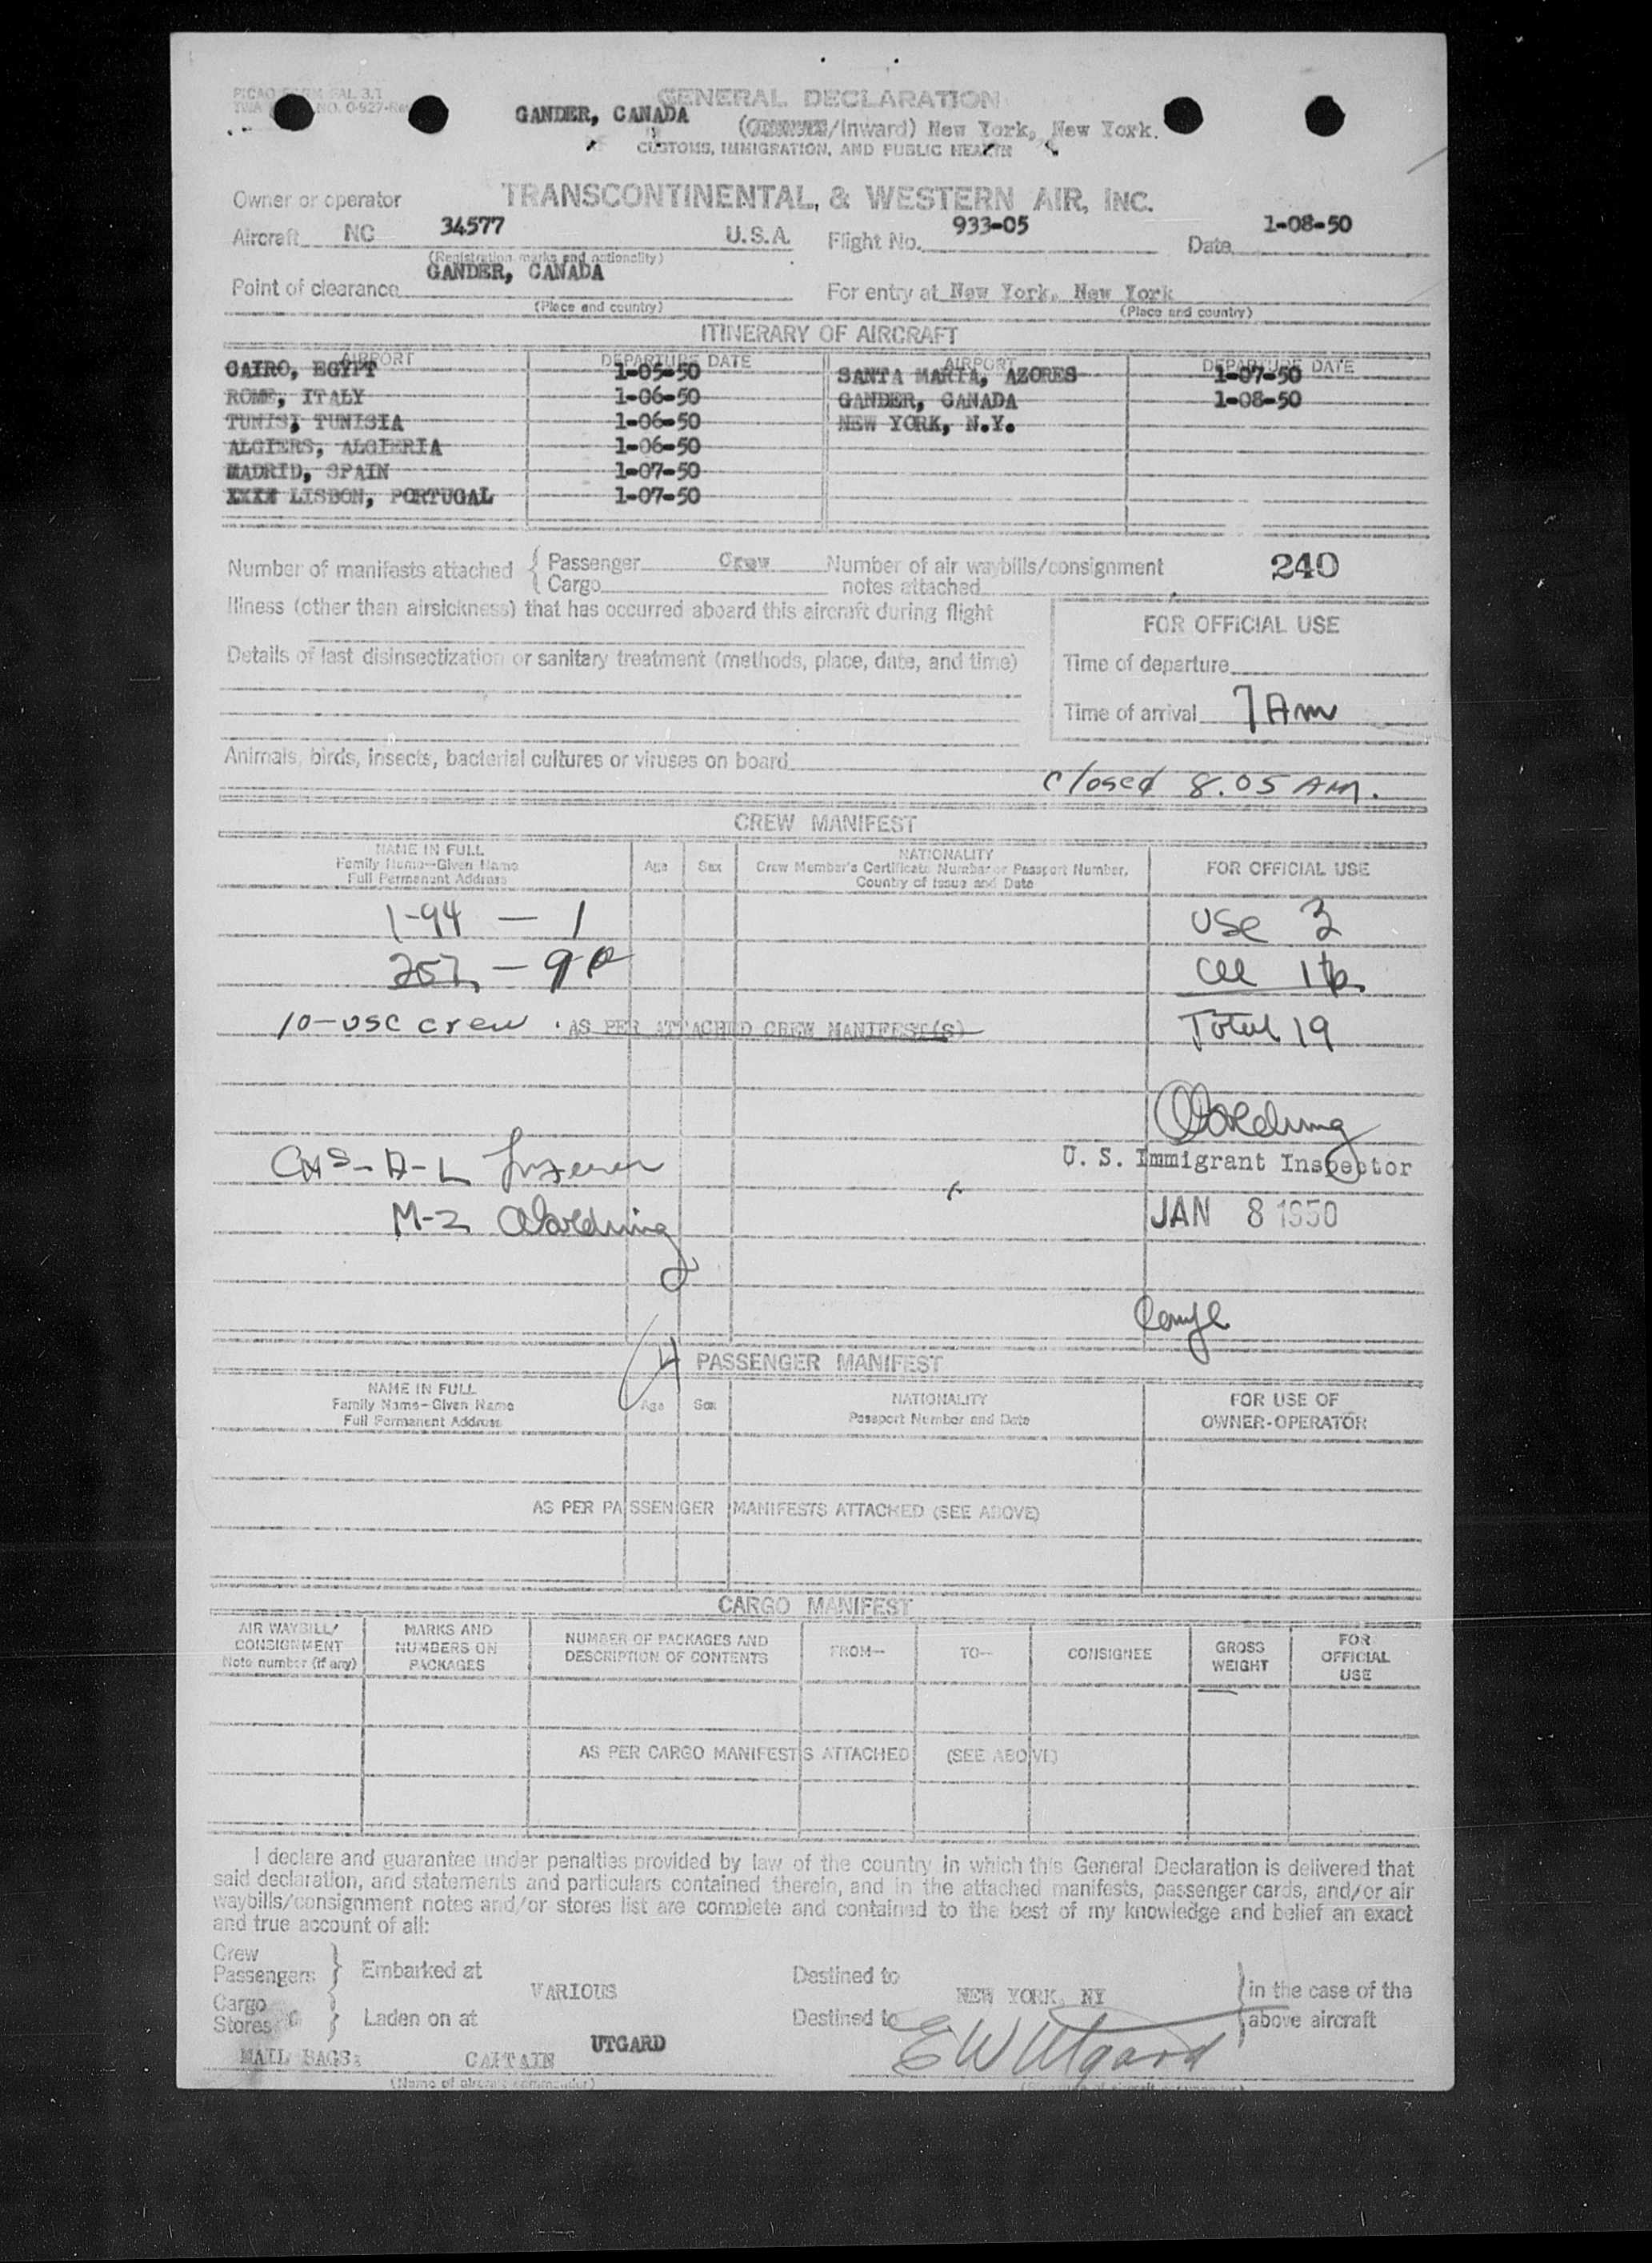 PICAO FORM FAL 3.1
TWA NO. O-927-Rev
GENERAL DECLARATION
GANDER, CANADA (/Inward) New York, New York.
CUSTOMS, IMMIGRATION, AND PUBLIC HEALTH
Owner or operator TRANSCONTINENTAL & WESTERN AIR, INC.
Aircraft NC 34577 U.S.A. Flight No. 933-05 Date 1-08-50
(Registration marks and nationality)
Point of clearance GANDER, CANADA For entry at New York, New York
(Place and country) (Place and country)
ITINERARY OF AIRCRAFT
AIRPORT DEPARTURE DATE AIRPORT DEPARTURE DATE
CAIRO, EGYPT 1-05-50 SANTA MARIA, AZORES 1-07-50
ROME, ITALY 1-06-50 GANDER, CANADA 1-08-50
TUNIS, TUNISIA 1-06-50 NEW YORK, N.Y.
ALGIERS, ALGIERIA 1-06-50
MADRID, SPAIN 1-07-50
XXXX LISBON, PORTUGAL 1-07-50
Number of manifests attached { Passenger Crew Number of air waybills/consignment 240
Cargo notes attached
Illness (other than airsickness) that has occurred aboard this aircraft during flight
FOR OFFICIAL USE
Details of last disinsectization or sanitary treatment (methods, place, date, and time)
Time of departure
Time of arrival 7 Am
Animals, birds, insects, bacterial cultures or viruses on board
closed 8.05 AM.
CREW MANIFEST
NAME IN FULL
Family Name—Given Name
Full Permanent Address
Age Sex
NATIONALITY
Crew Member's Certificate Number or Passport Number,
Country of Issue and Date
FOR OFFICIAL USE
1-94 — 1 USC 3
257 — 9
10-USC crew . AS PER ATTACHED CREW MANIFEST(S) Total 19
U. S. Immigrant Inspector
M-2
JAN 8 1950
4
PASSENGER MANIFEST
NAME IN FULL
Family Name—Given Name
Full Permanent Address
Age Sex
NATIONALITY
Passport Number and Date
FOR USE OF
OWNER-OPERATOR
AS PER PASSENGER MANIFESTS ATTACHED (SEE ABOVE)
CARGO MANIFEST
AIR WAYBILL/
CONSIGNMENT
Note number (if any)
MARKS AND
NUMBERS ON
PACKAGES
NUMBER OF PACKAGES AND
DESCRIPTION OF CONTENTS
FROM—
TO—
CONSIGNEE
GROSS
WEIGHT
FOR
OFFICIAL
USE
AS PER CARGO MANIFESTS ATTACHED (SEE ABOVE)
I declare and guarantee under penalties provided by law of the country in which this General Declaration is delivered that
said declaration, and statements and particulars contained therein, and in the attached manifests, passenger cards, and/or air
waybills/consignment notes and/or stores list are complete and contained to the best of my knowledge and belief an exact
and true account of all:
Crew
Passengers } Embarked at Destined to
VARIOUS NEW YORK, NY } in the case of the
Cargo
Stores } Laden on at Destined to above aircraft
MAIL BAGS: CAPTAIN UTGARD E W Utgard
(Name of aircraft commander)